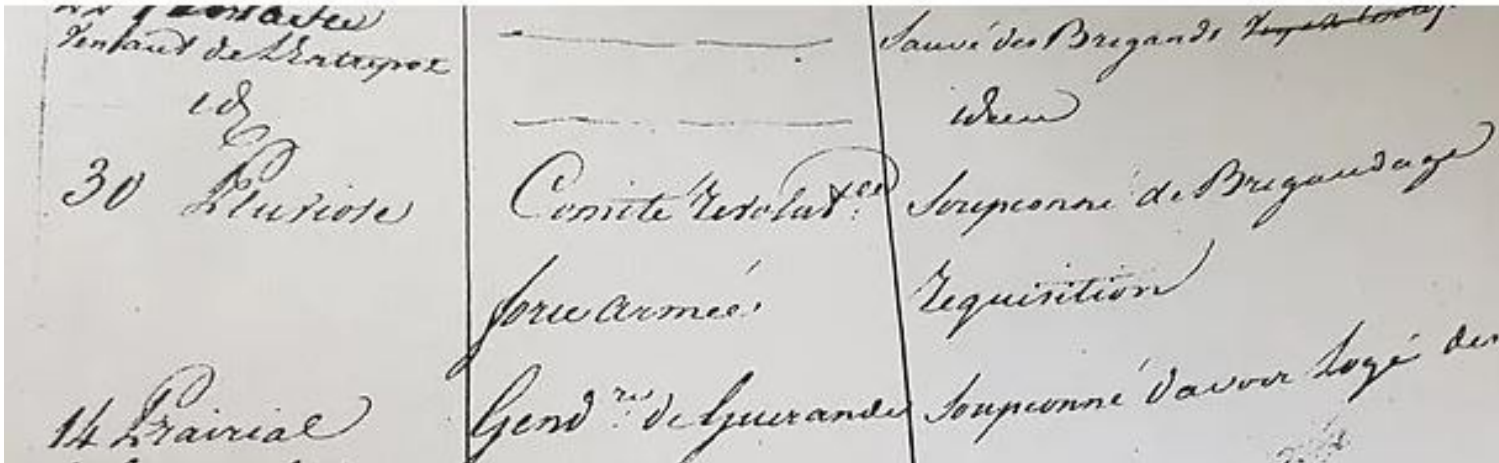 Venant de L'Entrepot
Sauvé des Brigands
id
idem
30 Pluviose
Comité Revolut.re
Soupçonné de Brigandage
force armée
Requisition
14 Prairial
Gend.res de Guerande
Soupçonné d'avoir logé des